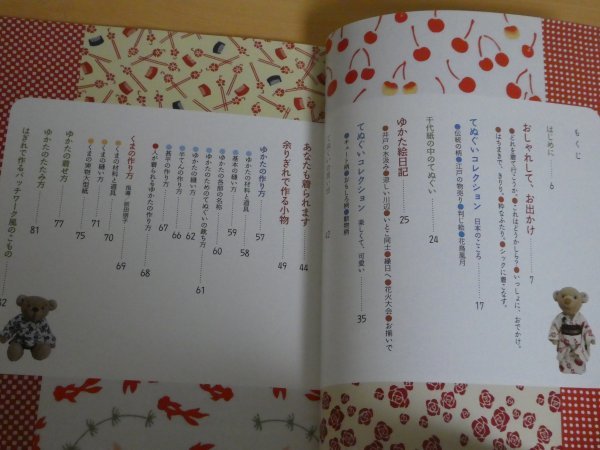 もくじ
はじめに……6
おしゃれして、お出かけ……7
●どれを着て行こうか。●これはどうかしら?●いっしょに、おでかけ。
●はちまきで、きりり。●粋なふたり。●シックに着こなす。
てぬぐいコレクション 日本のこころ……17
●伝統の柄●江戸の物売り●判じ絵●花鳥風月
千代紙の中のてぬぐい……24
ゆかた絵日記……25
●井戸の水汲み●涼しい川辺●いとこ同士●縁日へ●花火大会●お揃いで
てぬぐいコレクション 楽しくて、可愛い……35
42
あなたも着られます……44
余りぎれで作る小物……49
ゆかたの作り方……57
●ゆかたの材料と道具
●基本の縫い方……59
●ゆかたの各部の名称……58
●ゆかたのためのてぬぐいの裁ち方……60
●ゆかたの縫い方……61
62
66
67
●人が着られるゆかたの作り方……68
くまの作り方
●くまの材料と道具……69
●くまの縫い方……70
●くまの実物大型紙……71
ゆかたの着せ方……75
ゆかたのたたみ方……77
はぎれで作るパッチワーク風のこもの……81